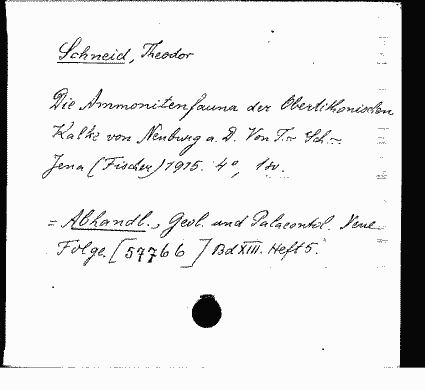 Schneid, Theodor
Die Ammonitenfauna der Obertithonischen
Kalke von Neuburg a. D. Von T.~ Sch.~
Jena (Fischer) 1915. 4°,
= Abhandl., Geol. und Palaeontol. Neue
Folge. [57766] Bd XIII. Heft 5.